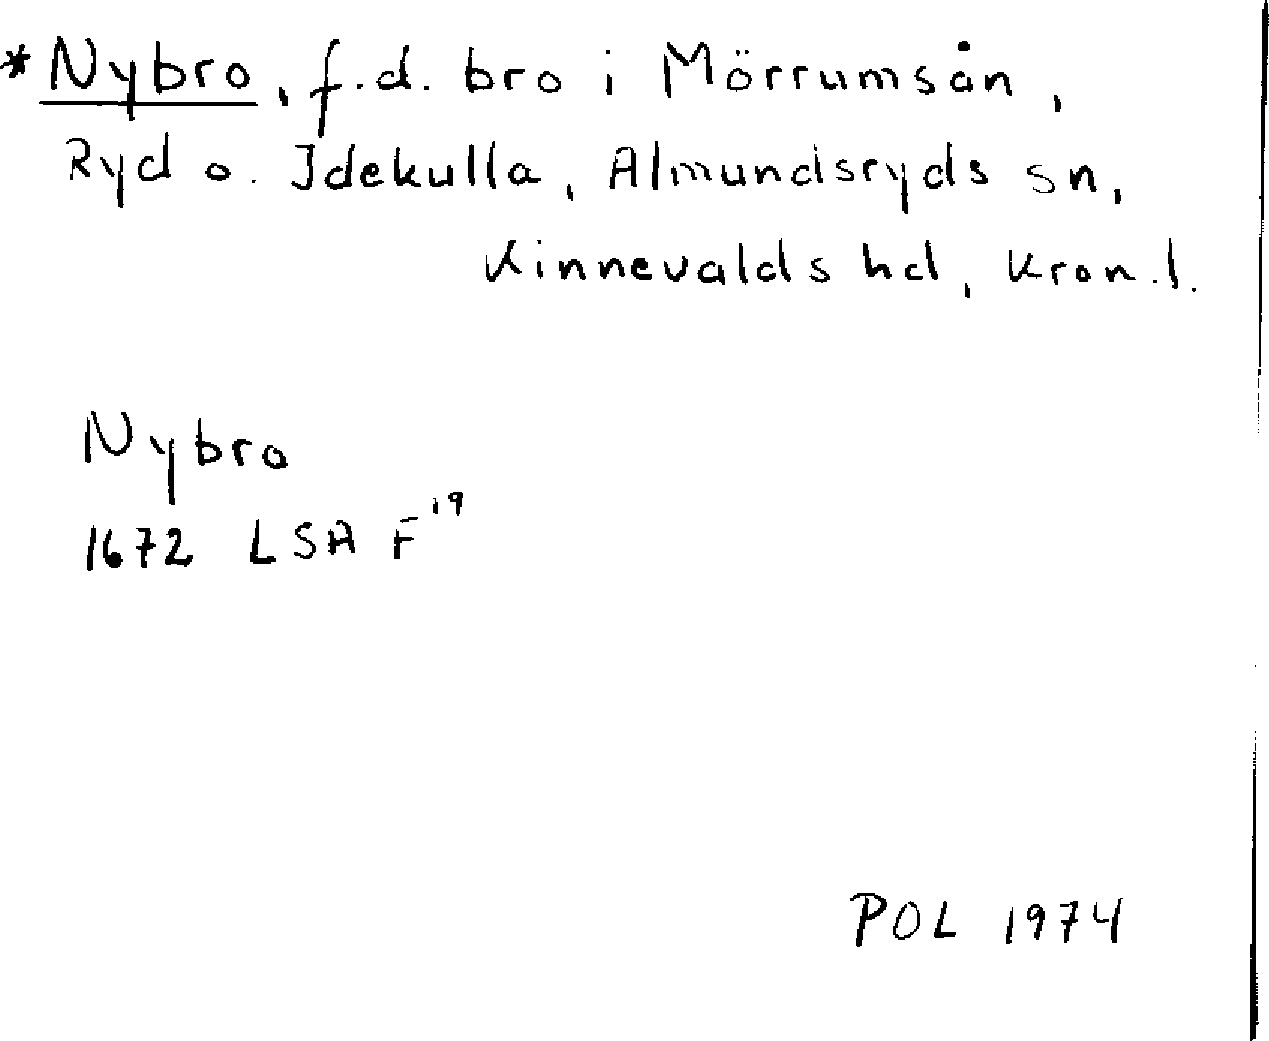 *Nybro, f.d. bro i Mörrumsån,
Ryd o. Idekulla, Almundsryds sn,
Kinnevalds hd, Kron.l.
Nybro
1672 LSA F¹⁹
POL 1974